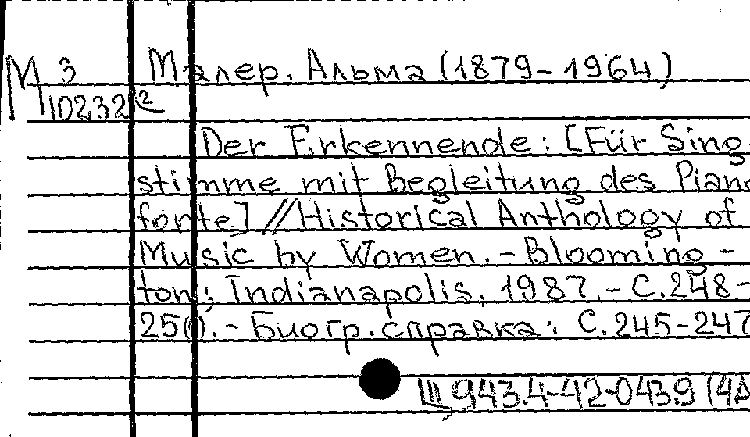 М 3 Малер, Альма (1879-1964)
10232/2
Der Erkennende: [Für Sing-
stimme mit Begleitung des Piano
forte] // Historical Anthology of
Music by Women. - Blooming-
ton; Indianapolis, 1987. - С.248-
250. - Биогр. справка: С.245-247
Щ943.4-42-043.9(4А